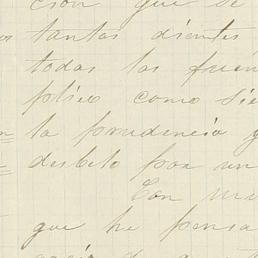 cion que se
tantas dientes
todas las fuen
plieo como sie
la prudencia y
desbelo poa un
Con
que he pensa